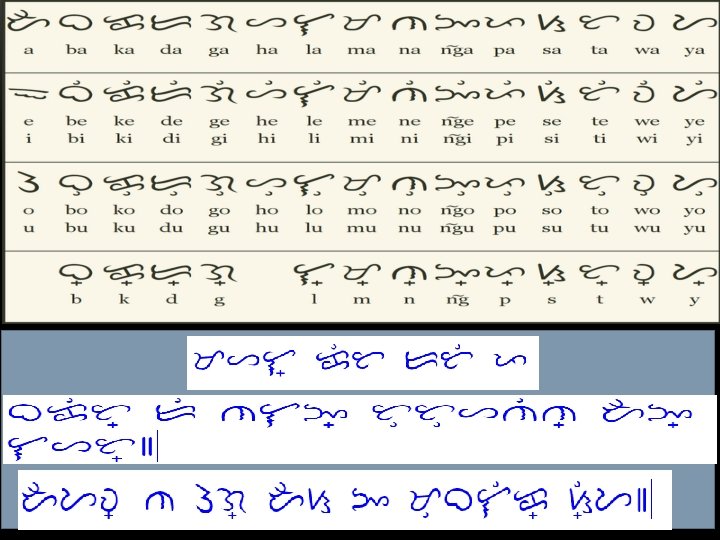 ᜀ ᜊ ᜃ ᜇ ᜄ ᜑ ᜎ ᜋ ᜈ ᜅ ᜉ ᜐ ᜆ ᜏ ᜌ
a ba ka da ga ha la ma na n͠ga pa sa ta wa ya
ᜁ ᜊᜒ ᜃᜒ ᜇᜒ ᜄᜒ ᜑᜒ ᜎᜒ ᜋᜒ ᜈᜒ ᜅᜒ ᜉᜒ ᜐᜒ ᜆᜒ ᜏᜒ ᜌᜒ
e be ke de ge he le me ne n͠ge pe se te we ye
i bi ki di gi hi li mi ni n͠gi pi si ti wi yi
ᜂ ᜊᜓ ᜃᜓ ᜇᜓ ᜄᜓ ᜑᜓ ᜎᜓ ᜋᜓ ᜈᜓ ᜅᜓ ᜉᜓ ᜐᜓ ᜆᜓ ᜏᜓ ᜌᜓ
o bo ko do go ho lo mo no n͠go po so to wo yo
u bu ku du gu hu lu mu nu n͠gu pu su tu wu yu
ᜊ᜔ ᜃ᜔ ᜇ᜔ ᜄ᜔ ᜎ᜔ ᜋ᜔ ᜈ᜔ ᜅ᜔ ᜉ᜔ ᜐ᜔ ᜆ᜔ ᜏ᜔ ᜌ᜔
b k d g l m n n͠g p s t w y
ᜋᜑᜎ᜔ ᜃᜒᜆ ᜇᜆᜒ ᜉ
ᜊᜃᜒᜆ᜔ ᜇᜒ ᜈᜎᜅ᜔ ᜆᜓᜆᜓᜑᜈᜒᜈ᜔ ᜀᜅ᜔
ᜎᜑᜆ᜔᜶
ᜀᜌᜏ᜔ ᜈ ᜂᜄ᜔ ᜀᜐ ᜅ ᜋᜓᜊᜎᜒᜃ᜔ ᜐᜒ᜔ᜌ᜶